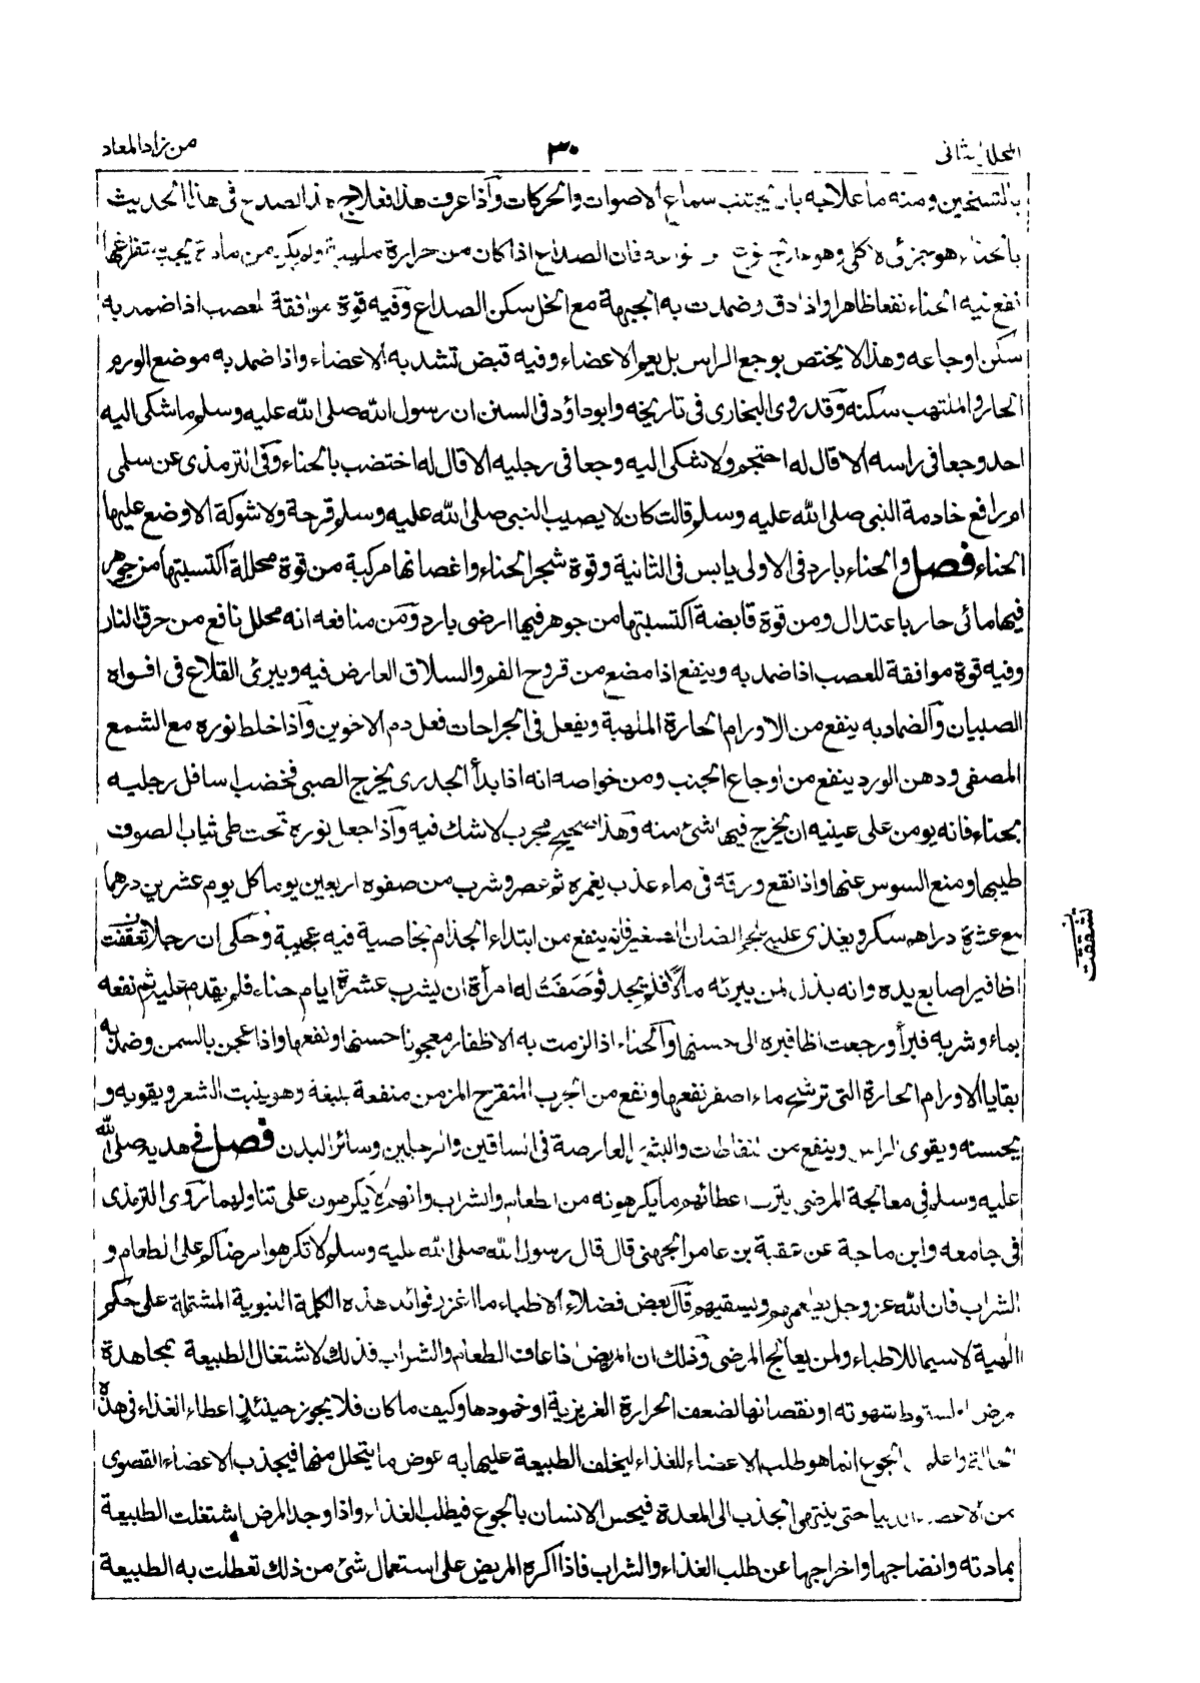 المجلد الثانى ٣٠ من زاد المعاد
بالتسخين ومنه ما علاجه بان يجتنب سماع الاصوات والحركات واذا عرفت هذا فعلاج الصداع فى هذا الحديث
بالحناء هو جزئى لا كلى وهو علاج نوع من انواعه فان الصداع اذا كان من حرارة ملهبة ولم يكن من مادة يجب تفراغها
نفع فيه الحناء نفعا ظاهرا واذا دق وضمدت به الجبهة مع الخل سكن الصداع وفيه قوة موافقة لعصب اذا ضمد به
سكن اوجاعه وهذا لا يختص بوجع الراس بل يعم الاعضاء وفيه قبض تشد به الاعضاء واذا ضمد به موضع الورم
الحار والملتهب سكنه وقد روى البخارى فى تاريخه وابو داؤد فى السنن ان رسول الله صلى الله عليه وسلم ما شكى اليه
احد وجعا فى راسه الا قال له احتجم ولا شكى اليه وجعا فى رجليه الا قال له اختضب بالحناء وفى الترمذى عن سلمى
ام رافع خادمة النبى صلى الله عليه وسلم قالت كان لا يصيب النبى صلى الله عليه وسلم قرحة ولا شوكة الا وضع عليها
الحناء فصل والحناء بارد فى الاولى يابس فى الثانية وقوة شجر الحناء واغصانها مركبة من قوة محللة اكتسبتها من جوهر
فيها مائى حار باعتدال ومن قوة قابضة اكتسبتها من جوهر فيها ارضى بارد ومن منافعه انه محلل نافع من حرق النار
وفيه قوة موافقة للعصب اذا ضمد به وينفع اذا مضغ من قروح الفم والسلاق العارض فيه ويبرئ القلاع فى افواه
الصبيان والضماد به ينفع من الاورام الحارة الملهبة ويفعل فى الجراحات فعل دم الاخوين واذا خلط نوره مع الشمع
المصفى ودهن الورد ينفع من اوجاع الجنب ومن خواصه انه اذا بدأ الجدرى يخرج الصبى فخضب اسافل رجليه
بحناء فانه يومن على عينيه ان يخرج فيها شئ منه وهذا صحيح مجرب لا شك فيه واذا جعل نوره تحت طى ثياب الصوف
طيبها ومنع السوس عنها واذا نقع ورقه فى ماء عذب يغمره ثم عصر وشرب من صفوه اربعين يوما كل يوم عشرين درهما
مع عشرة دراهم سكر ويغذى عليه بلحم الضان الصغير فانه ينفع من ابتداء الجذام بخاصية فيه عجيبة وحكى ان رجلا تعقفت
اظافير اصابع يده وانه بذل لمن يبرئه مالا فلم يجد فوصفت له امرأة ان يشرب عشرة ايام حناء فلم يقدم عليه ثم نقعه
بماء وشربه فبرأ ورجعت اظافيره الى حسنها والحناء اذا لزمت به الاظفار معجونا حسنها ونفعها واذا عجن بالسمن وضمد به
بقايا الاورام الحارة التى ترشح ماء اصفر نفعها ونفع من الجرب المتقرح المزمن منفعة بليغة وهو ينبت الشعر ويقويه و
يحسنه ويقوى الراس وينفع من النفاطات والبثور العارضة فى الساقين والرجلين وسائر البدن فصل فى هديه صلى الله
عليه وسلم فى معالجة المرضى بترك اعطائهم ما يكرهونه من الطعام والشراب وانهم لا يكرهون على تناولهما روى الترمذى
فى جامعه وابن ماجة عن عقبة بن عامر الجهنى قال قال رسول الله صلى الله عليه وسلم لا تكرهوا مرضاكم على الطعام و
الشراب فان الله عز وجل يطعمهم ويسقيهم قال بعض فضلاء الاطباء ما اغزر فوائد هذه الكلمة النبوية المشتملة على حكم
الٰهية لا سيما للاطباء ولمن يعالج المرضى وذلك ان المريض اذا عاف الطعام والشراب فذلك لاشتغال الطبيعة بمجاهدة
مرض او لسقوط شهوته او نقصانها لضعف الحرارة الغريزية او خمودها وكيف ما كان فلا يجوز حينئذ اعطاء الغذاء فى هذه
الحالة واعلم ان الجوع انما هو طلب الاعضاء للغذاء ليخلف الطبيعة عليها به عوض ما يتحلل منها فيجذب الاعضاء القصوى
من الاعضاء الدنيا حتى ينتهى الجذب الى المعدة فيحس الانسان بالجوع فيطلب الغذاء واذا وجد المرض اشتغلت الطبيعة
بمادته وانضاجها واخراجها عن طلب الغذاء والشراب فاذا اكره المريض على استعمال شئ من ذلك تعطلت به الطبيعة
تشققت